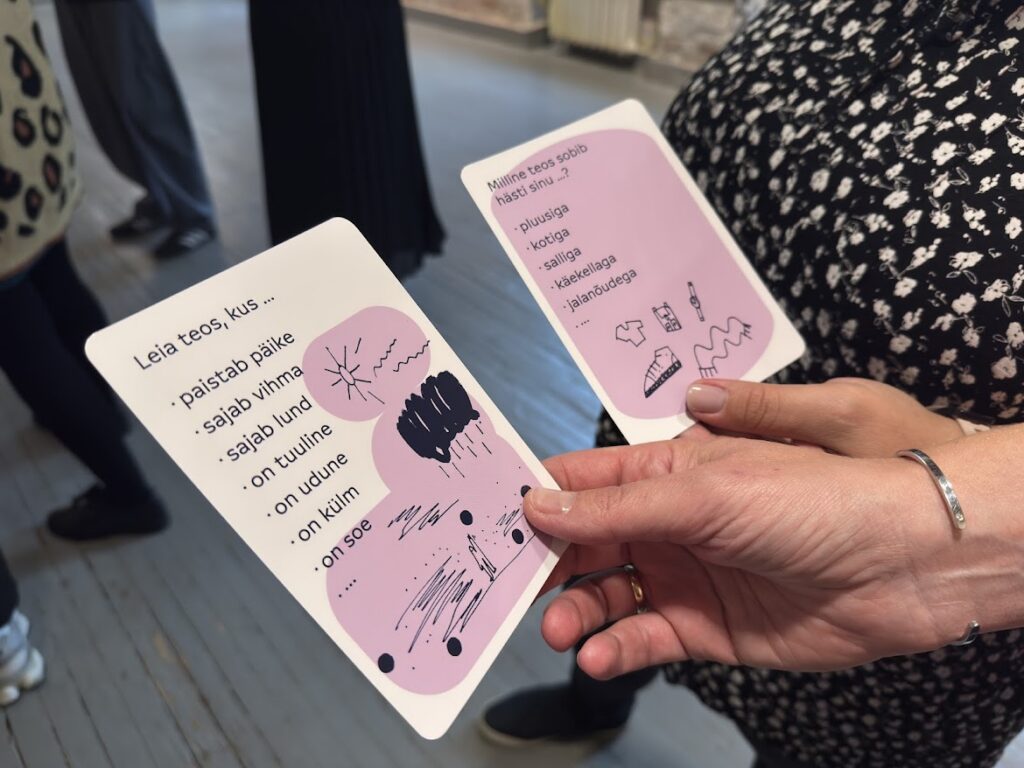 Leia teos, kus ...
· paistab päike
· sajab vihma
· sajab lund
· on tuuline
· on udune
· on külm
· on soe
....
Milline teos sobib
hästi sinu ...?
· pluusiga
· kotiga
· salliga
· käekellaga
· jalanõudega
....